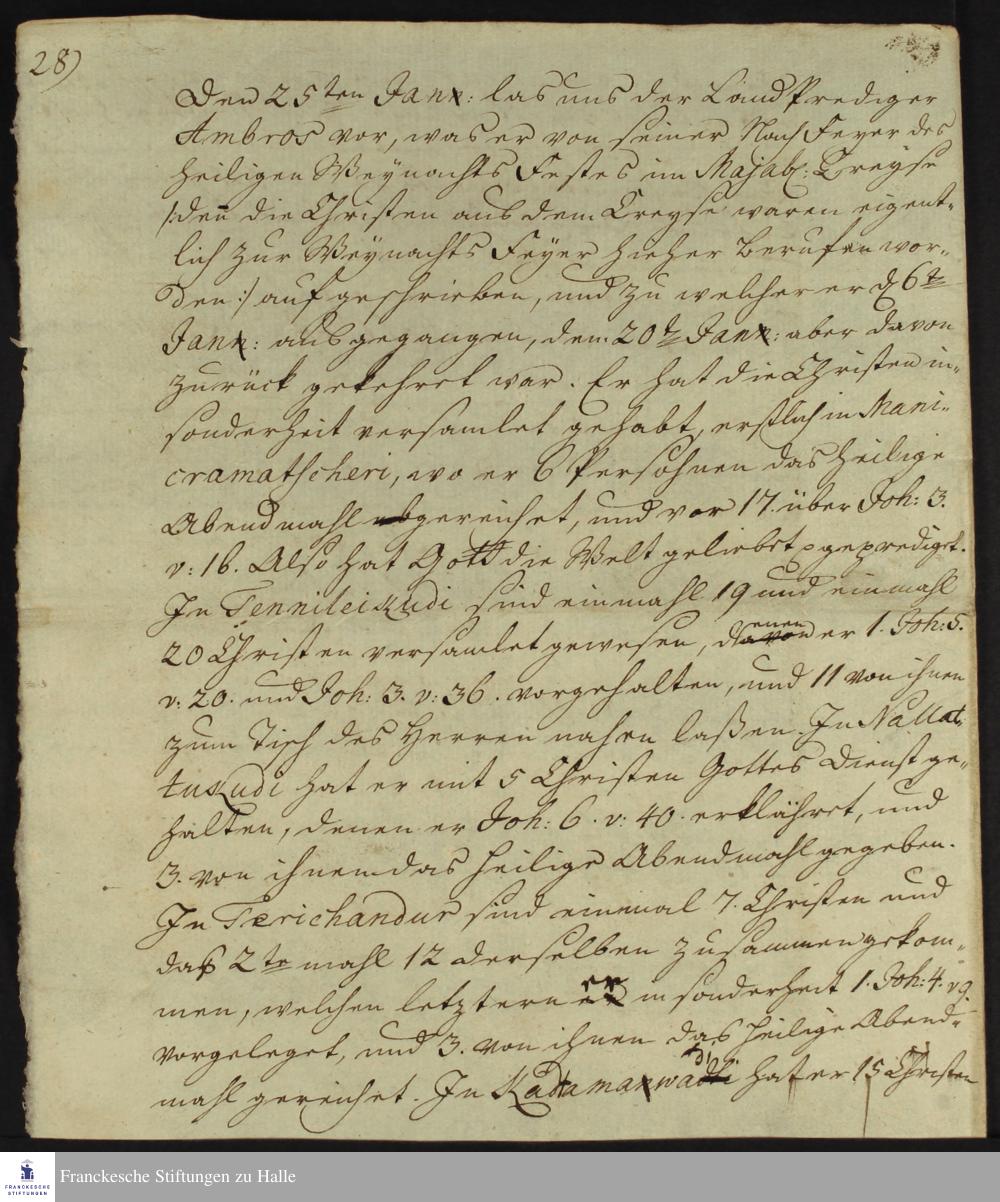 28)
Den 25ten Janr: las uns der Land Prediger
Ambros vor, was er von seiner Nach Feyer des
heiligen Weynachts Festes im Majab: Creyse
/: den die Christen aus dem Creyse waren eigent-
lich zur Weynachts Feyer hieher beruffen wor-
den :/ aufgeschrieben, und zu welcher er d 6te
Janr: ausgegangen, den 20te Janr: aber davon
zurück gekehret war. Er hat die Christen in-
sonderheit versamlet gehabt, erstlich in Mani-
cramatscheri, wo er 6 Persohnen das heilige
Abendmahl gereichet, und vor 17. über Joh: 3.
v: 16. Also hat Gott die Welt geliebet p geprediget.
In Tennileikudi sind einmahl 19 und einmahl
20 Christen versamlet gewesen, denen er 1. Joh: 5.
v: 20. und Joh: 3. v: 36. vorgehalten, und 11 von ihnen
zum Tisch des Herren nahen laßen. In Nallat-
tukudi hat er mit 5 Christen Gottes Dienst ge-
halten, denen er Joh: 6. v: 40. erklähret, und
3. von ihnen das heilige Abendmahl gegeben.
In Terichandur sind einmal 7. Christen und
daß 2te mahl 12 derselben zusammen gekom-
men, welchen letztern er insonderheit 1. Joh: 4. v 9.
vorgeleget, und 3. von ihnen das heilige Abend-
mahl gereichet. In hat er 15 Christen
FRANCKESCHE STIFTUNGEN
Franckesche Stiftungen zu Halle